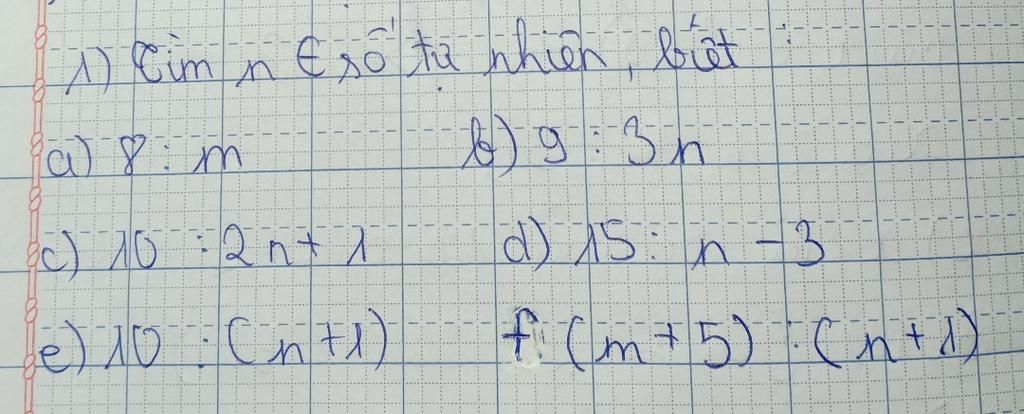 1) Tìm n ∈ số tự nhiên, biết :
a) 8 : m b) 9 : 3n
c) 10 : 2n + 1 d) 15 : n - 3
e) 10 : (n + 1) f (m + 5) : (n + 1)